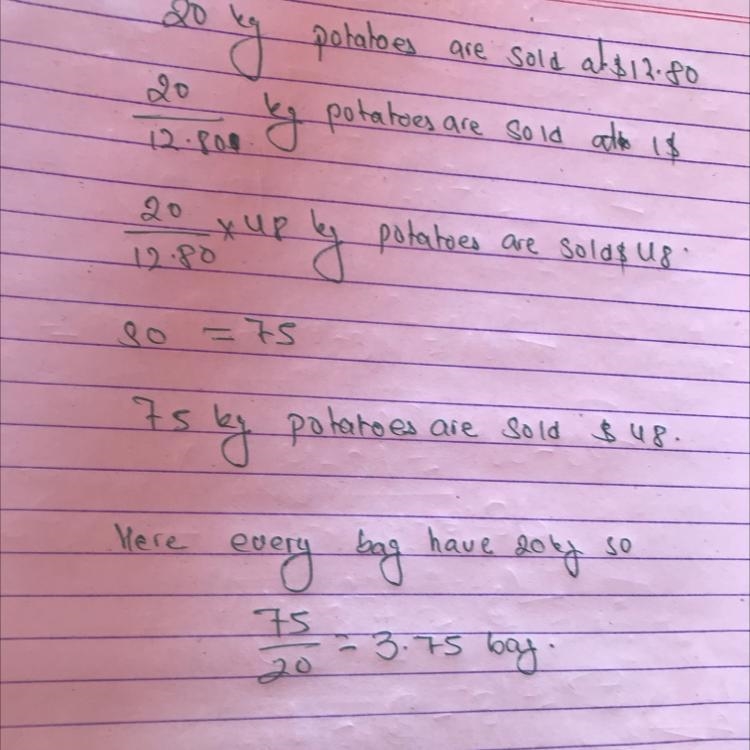 20 kg potatoes are sold at $12.80
20/12.80 kg potatoes are sold at 1$
20/12.80 × 48 kg potatoes are sold $ 48.
so = 75
75 kg potatoes are sold $ 48.
Here every bag have 20kg so
75/20 = 3.75 bag.